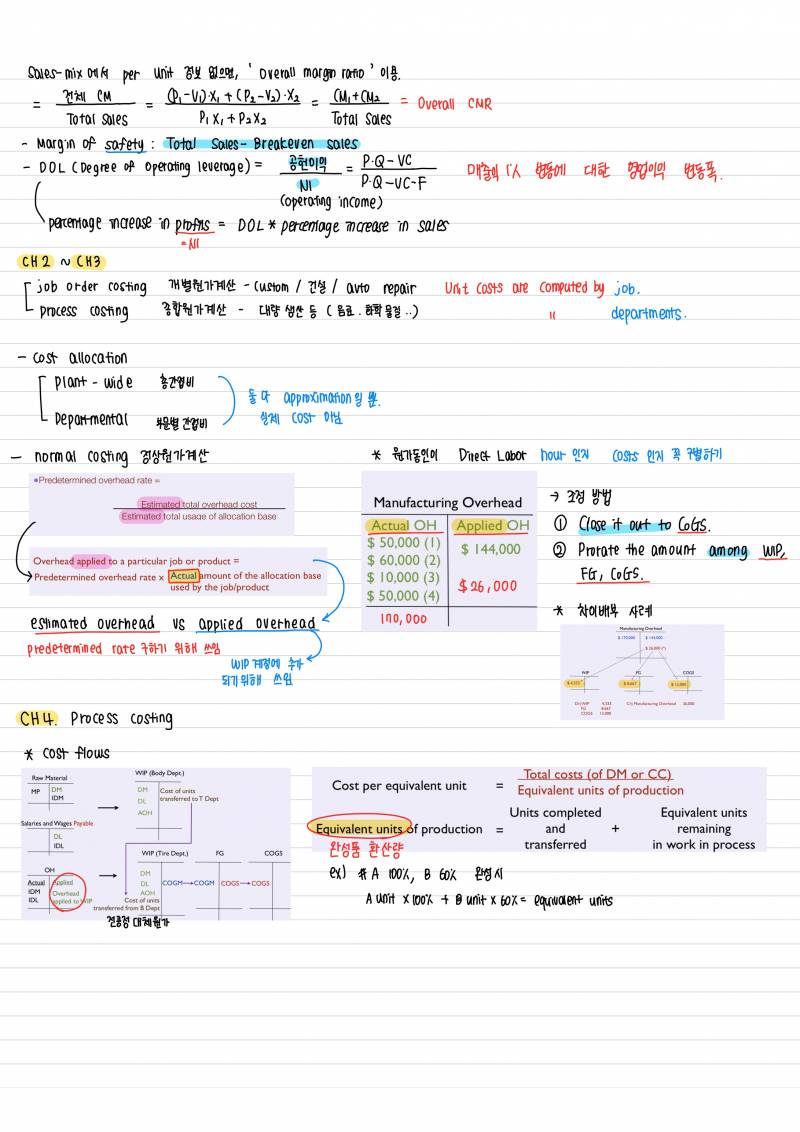 Sales-mix 에서 per unit 정보 없으면, 'Overall margin ratio' 이용.
= 전체 CM / Total Sales = (P₁-V₁)·X₁+(P₂-V₂)·X₂ / P₁X₁+P₂X₂ = CM₁+CM₂ / Total Sales = Overall CMR
- Margin of safety : Total Sales - Breakeven sales
- DOL (Degree of operating leverage) = 공헌이익 / NI (operating income) = P·Q-VC / P·Q-VC-F 매출의 1% 변동에 대한 영업이익 변동폭.
percentage increase in profits = DOL * percentage increase in sales
= NI
CH2 ~ CH3
job order costing 개별원가계산 - custom / 건설 / auto repair Unit costs are computed by job.
process costing 종합원가계산 - 대량 생산 등 ( 음료. 화학 물질 ..) " departments.
- Cost allocation
Plant - wide 총간접비
Departmental 부문별 간접비
둘 다 approximation일 뿐.
실제 cost 아님
- normal costing 정상원가계산
* 원가동인이 Direct Labor hour 인지 costs 인지 꼭 구별하기
•Predetermined overhead rate =
Estimated total overhead cost
Estimated total usage of allocation base
Overhead applied to a particular job or product =
Predetermined overhead rate x Actual amount of the allocation base
used by the job/product
estimated overhead vs applied overhead
predetermined rate 구하기 위해 쓰임
WIP 계정에 추가
되기위해 쓰임
Manufacturing Overhead
Actual OH Applied OH
$ 50,000 (1) $ 144,000
$ 60,000 (2)
$ 10,000 (3) $26,000
$ 50,000 (4)
170,000
→ 조정 방법
① Close it out to CoGS.
② Prorate the amount among WIP,
FG, CoGS.
* 차이배부 사례
Manufacturing Overhead
$ 170,000 $ 144,000
$ 26,000 (*)
WIP FG COGS
$ 4,333 $ 8,667 $ 13,000
Dr) WIP 4,333 Cr) Manufacturing Overhead 26,000
FG 8,667
COGS 13,000
CH4. Process costing
* Cost flows
Raw Material
MP DM
IDM
Salaries and Wages Payable
DL
IDL
OH
Actual Applied
IDM Overhead
IDL applied to WIP
WIP (Body Dept.)
DM Cost of units
DL transferred to T Dept
AOH
WIP (Tire Dept.) FG COGS
DM
DL COGM → COGM COGS → COGS
AOH
Cost of units
transferred from B Dept
전공정 대체원가
Cost per equivalent unit = Total costs (of DM or CC) / Equivalent units of production
Equivalent units of production = Units completed and transferred + Equivalent units remaining in work in process
완성품 환산량
ex) # A 100%, B 60% 완성시
A unit × 100% + B unit × 60% = equivalent units